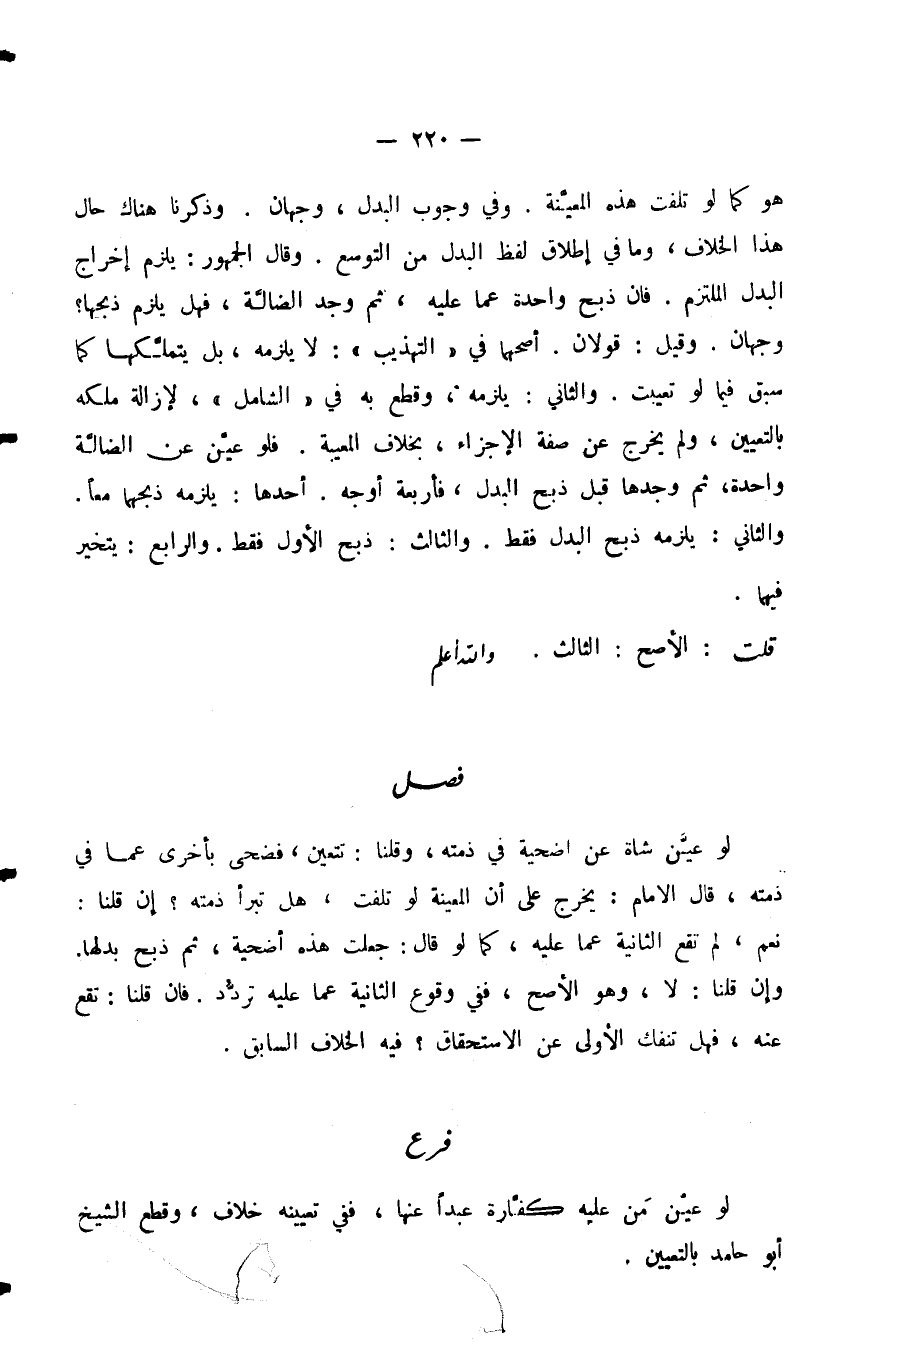 — ٢٢٠ —
هو كما لو تلفت هذه المعيَّنة . وفي وجوب البدل ، وجهان . وذكرنا هناك حال
هذا الخلاف ، وما في إطلاق لفظ البدل من التوسع . وقال الجمهور : يلزم إخراج
البدل الملتزم . فان ذبح واحدة عما عليه ، ثم وجد الضالَّة ، فهل يلزم ذبحها؟
وجهان . وقيل : قولان . أصحها في « التهذيب » : لا يلزمه ، بل يتملَّكها كما
سبق فيما لو تعيبت . والثاني : يلزمه ، وقطع به في « الشامل » ، لإزالة ملكه
بالتعيين ، ولم يخرج عن صفة الإجزاء ، بخلاف المعيبة . فلو عيَّن عن الضالَّة
واحدة، ثم وجدها قبل ذبح البدل ، فأربعة أوجه . أحدها : يلزمه ذبحها معاً .
والثاني : يلزمه ذبح البدل فقط . والثالث : ذبح الأول فقط . والرابع : يتخير
فيها .
قلت : الأصح : الثالث . والله أعلم
فصل
لو عيَّن شاة عن اضحية في ذمته ، وقلنا : تتعين ، فضحى بأخرى عما في
ذمته ، قال الامام : يخرج على أن المعينة لو تلفت ، هل تبرأ ذمته ؟ إن قلنا :
نعم ، لم تقع الثانية عما عليه ، كما لو قال : جعلت هذه أضحية ، ثم ذبح بدلها.
وإن قلنا : لا ، وهو الأصح ، ففي وقوع الثانية عما عليه تردُّد . فان قلنا : تقع
عنه ، فهل تنفك الأولى عن الاستحقاق ؟ فيه الخلاف السابق .
فرع
لو عيَّن مَن عليه كفَّارة عبداً عنها ، ففي تعيينه خلاف ، وقطع الشيخ
أبو حامد بالتعيين .